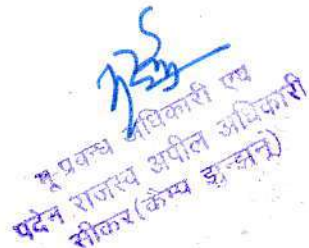 भू प्रबन्ध अधिकारी एवं
पदेन राजस्व अपील अधिकारी
सीकर (कैम्प झुन्झुनू)